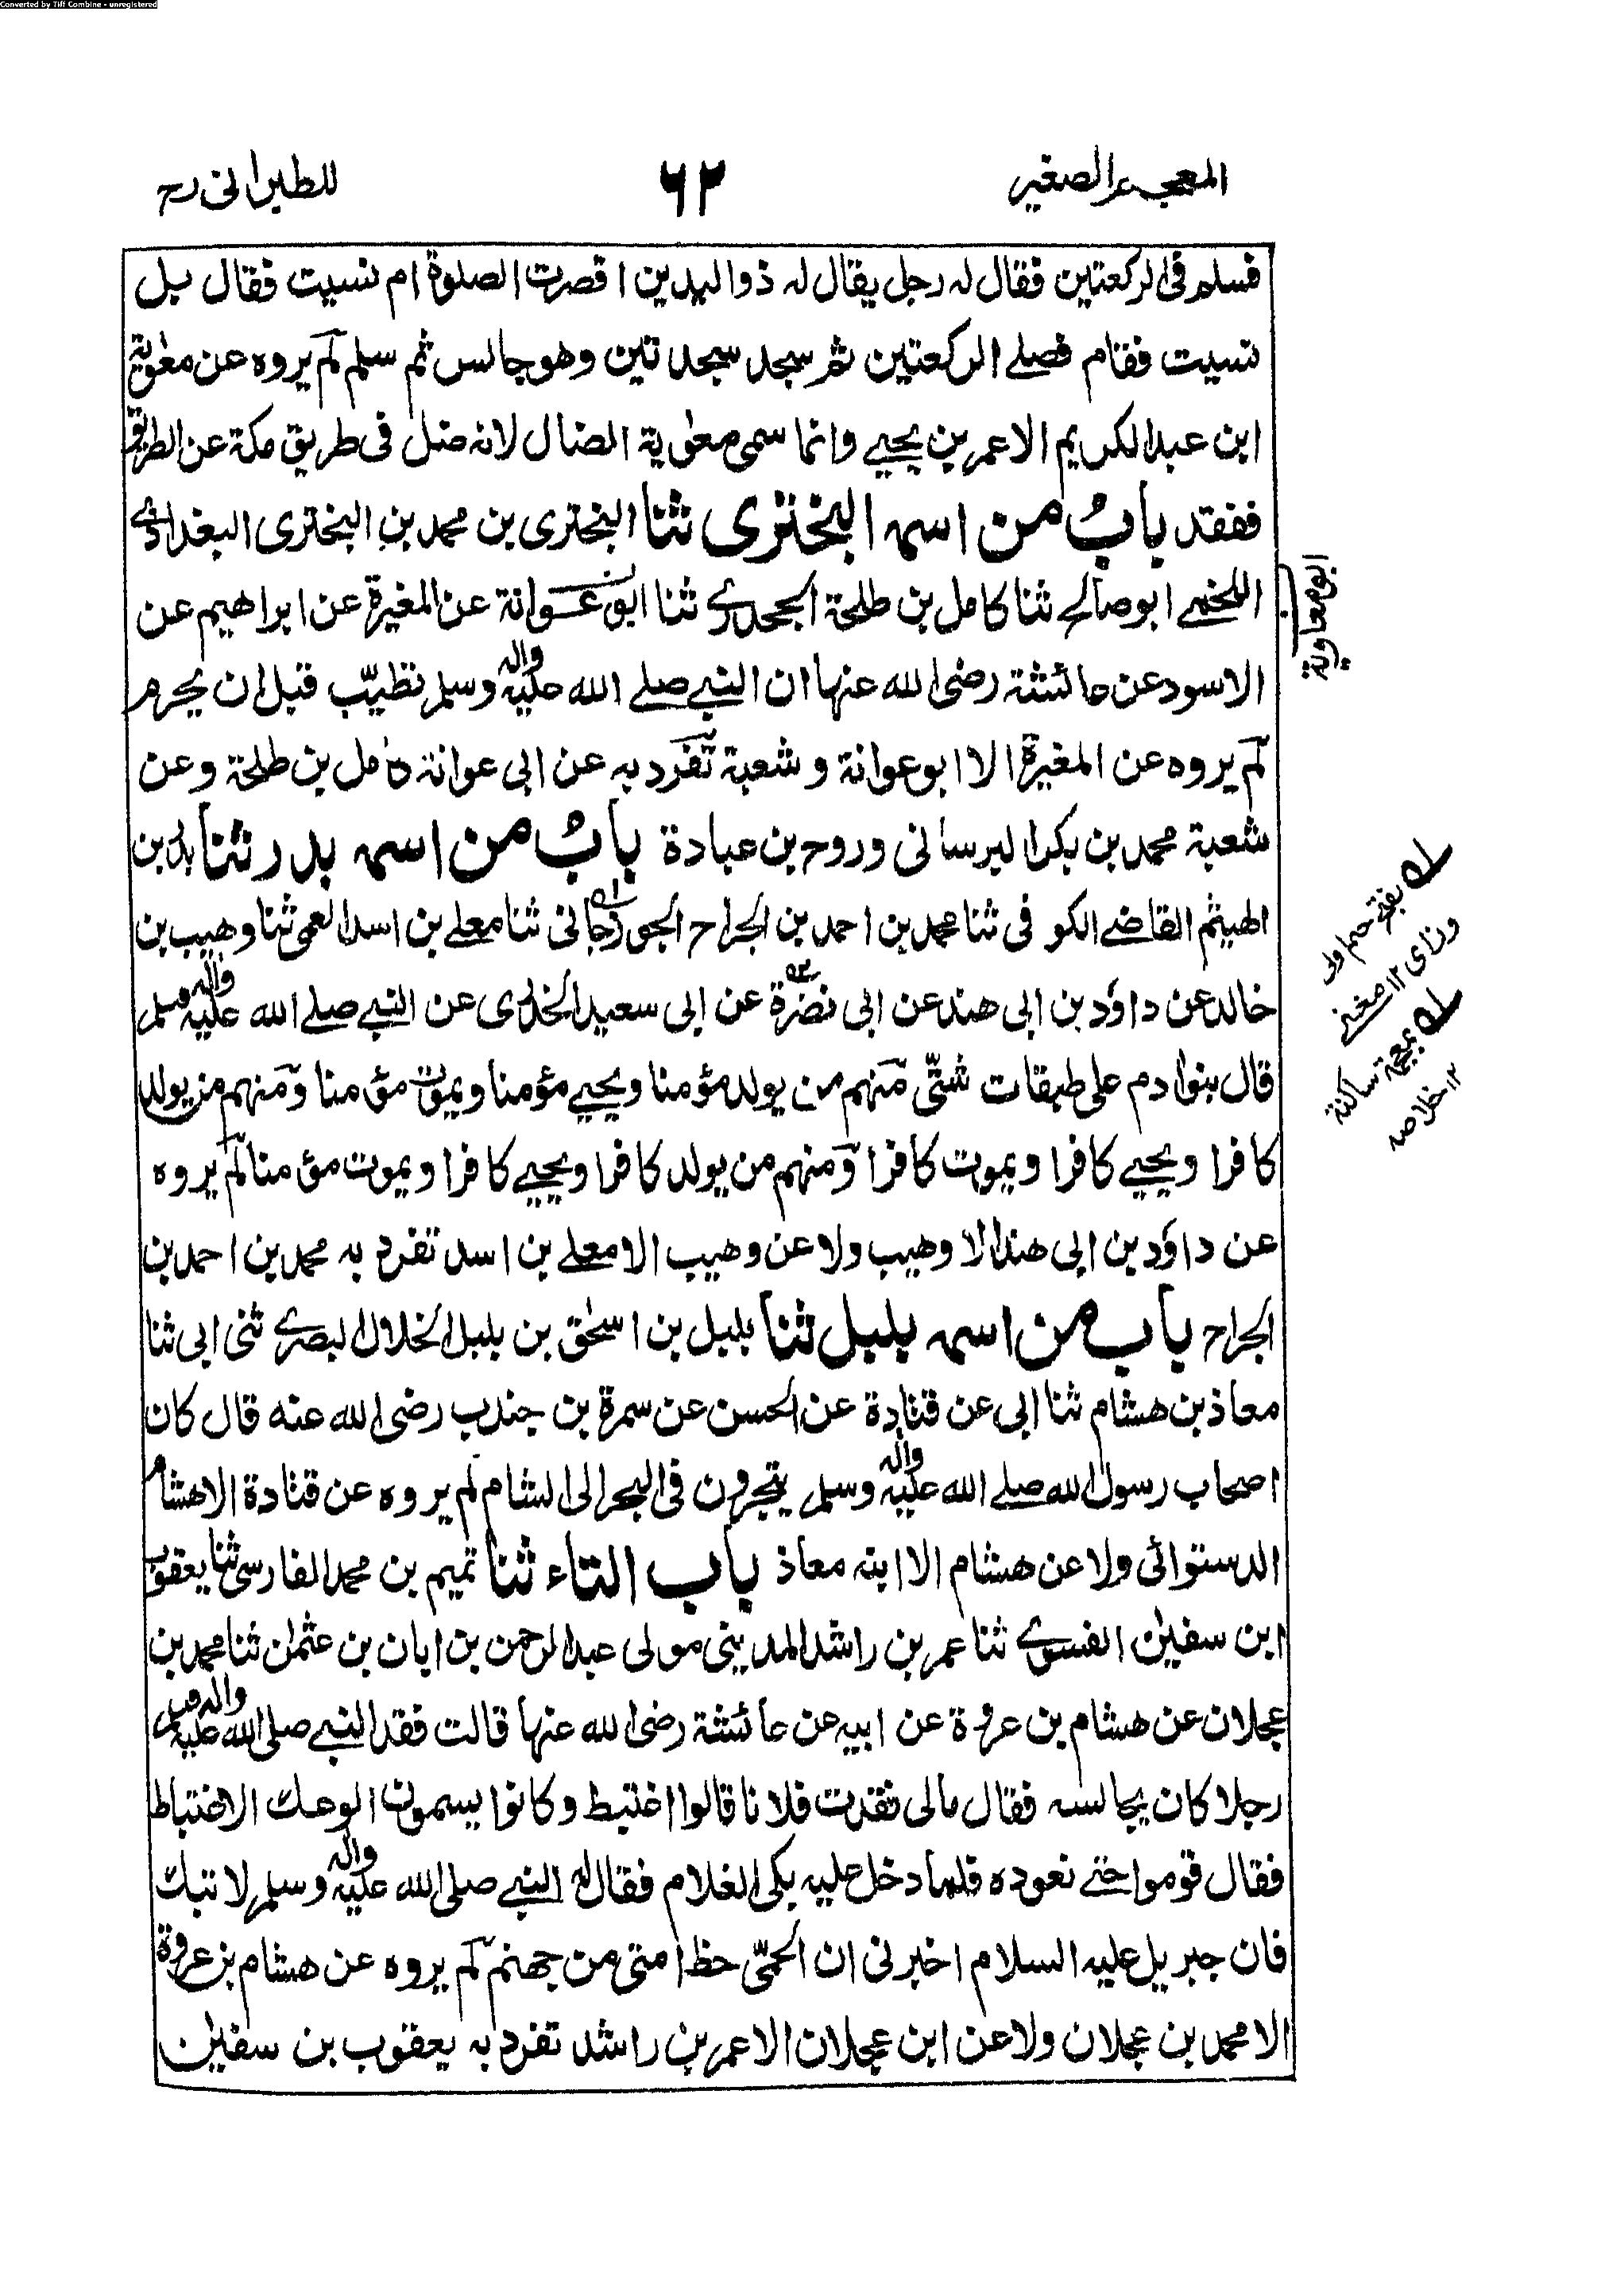 Converted by Tiff Combine - unregistered
المعجم الصغير
٦٢
للطبرانى رح
فسلم فى الركعتين فقال له رجل يقال له ذو اليدين اقصرت الصلوة ام نسيت فقال بل
نسيت فقام فصلے الركعتين ثم سجد سجدتين وهو جالس ثم سلم لم يروه عن معٰوية
ابن عبد الكريم الا عمر بن يحيے وانما سمى معٰوية الضال لانه ضل فى طريق مكة عن الطريق
ففقد بابُ من اسمه البختري ثنا البختري بن محمد بن البختري البغدادے
اللخمے ابو صالح ثنا كامل بن طلحة الجحدرے ثنا ابو عوانة عن المغيرة عن ابراهيم عن
الاسود عن عائشة رضى الله عنها ان النبے صلے الله عليه واٰله وسلم تطيّب قبل ان يحرم
لم يروه عن المغيرة الا ابو عوانة و شعبة تفرد به عن ابى عوانة كامل بن طلحة وعن
شعبة محمد بن بكر البرسانى وروح بن عبادة بابُ من اسمه بدر ثنا بدر بن
الهيثم القاضے الكوفى ثنا محمد بن احمد بن الجراح الجوزجانى ثنا معلے بن اسد العمى ثنا وهيب بن
خالد عن داؤد بن ابى هند عن ابى نضرة عن ابى سعيد الخدرى عن النبے صلے الله عليه واٰله وسلم
قال بنو ادم على طبقات شتّى منهم من يولد مؤمنا ويحيے مؤمنا ويموت مؤمنا ومنهم من يولد
كافرا ويحيے كافرا ويموت كافرا ومنهم من يولد كافرا ويحيے كافرا ويموت مؤمنا لم يروه
عن داؤد بن ابى هند الا وهيب ولا عن وهيب الا معلے بن اسد تفرد به محمد بن احمد بن
الجراح باب من اسمه بلبل ثنا بلبل بن اسحٰق بن بلبل الخلال البصرے ثنى ابى ثنا
معاذ بن هشام ثنا ابى عن قتادة عن الحسن عن سمرة بن جندب رضى الله عنه قال كان
اصحاب رسول الله صلے الله عليه واٰله وسلم يتجرون فى البحر الى الشام لم يروه عن قتادة الا هشام
الدستوائى ولا عن هشام الا ابنه معاذ باب التاء ثنا تميم بن محمد الفارسى ثنا يعقوب
ابن سفيٰن الفسوے ثنا عمر بن راشد المدينى مولى عبد الرحمن بن ابان بن عثمٰن ثنا محمد بن
عجلان عن هشام بن عروة عن ابيه عن عائشة رضى الله عنها قالت فقد النبے صلى الله عليه واٰله وسلم
رجلا كان يجالسه فقال مالى فقدت فلانا قالوا اغتبط وكانوا يسمون الوعك الاغتباط
فقال قوموا حتے نعوده فلما دخل عليه بكى الغلام فقال له النبے صلى الله عليه واٰله وسلم لا تبك
فان جبريل عليه السلام اخبرنى ان الحمّى حظ امتى من جهنم لم يروه عن هشام بن عروة
الا محمد بن عجلان ولا عن ابن عجلان الا عمر بن راشد تفرد به يعقوب بن سفيٰن
ابو معاوية
وزاى ١٢ مغنے
بمعجمة ساكنة
١٢ خلاصه